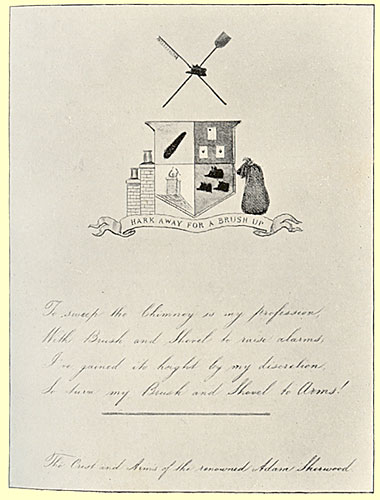 HARK AWAY FOR A BRUSH UP
To sweep the Chimney is my profession,
With Brush and Shovel to raise alarms,
I've gained its height by my discretion,
To turn my Brush and Shovel to Arms!
The Crest and Arms of the renowned Adam Sherwood